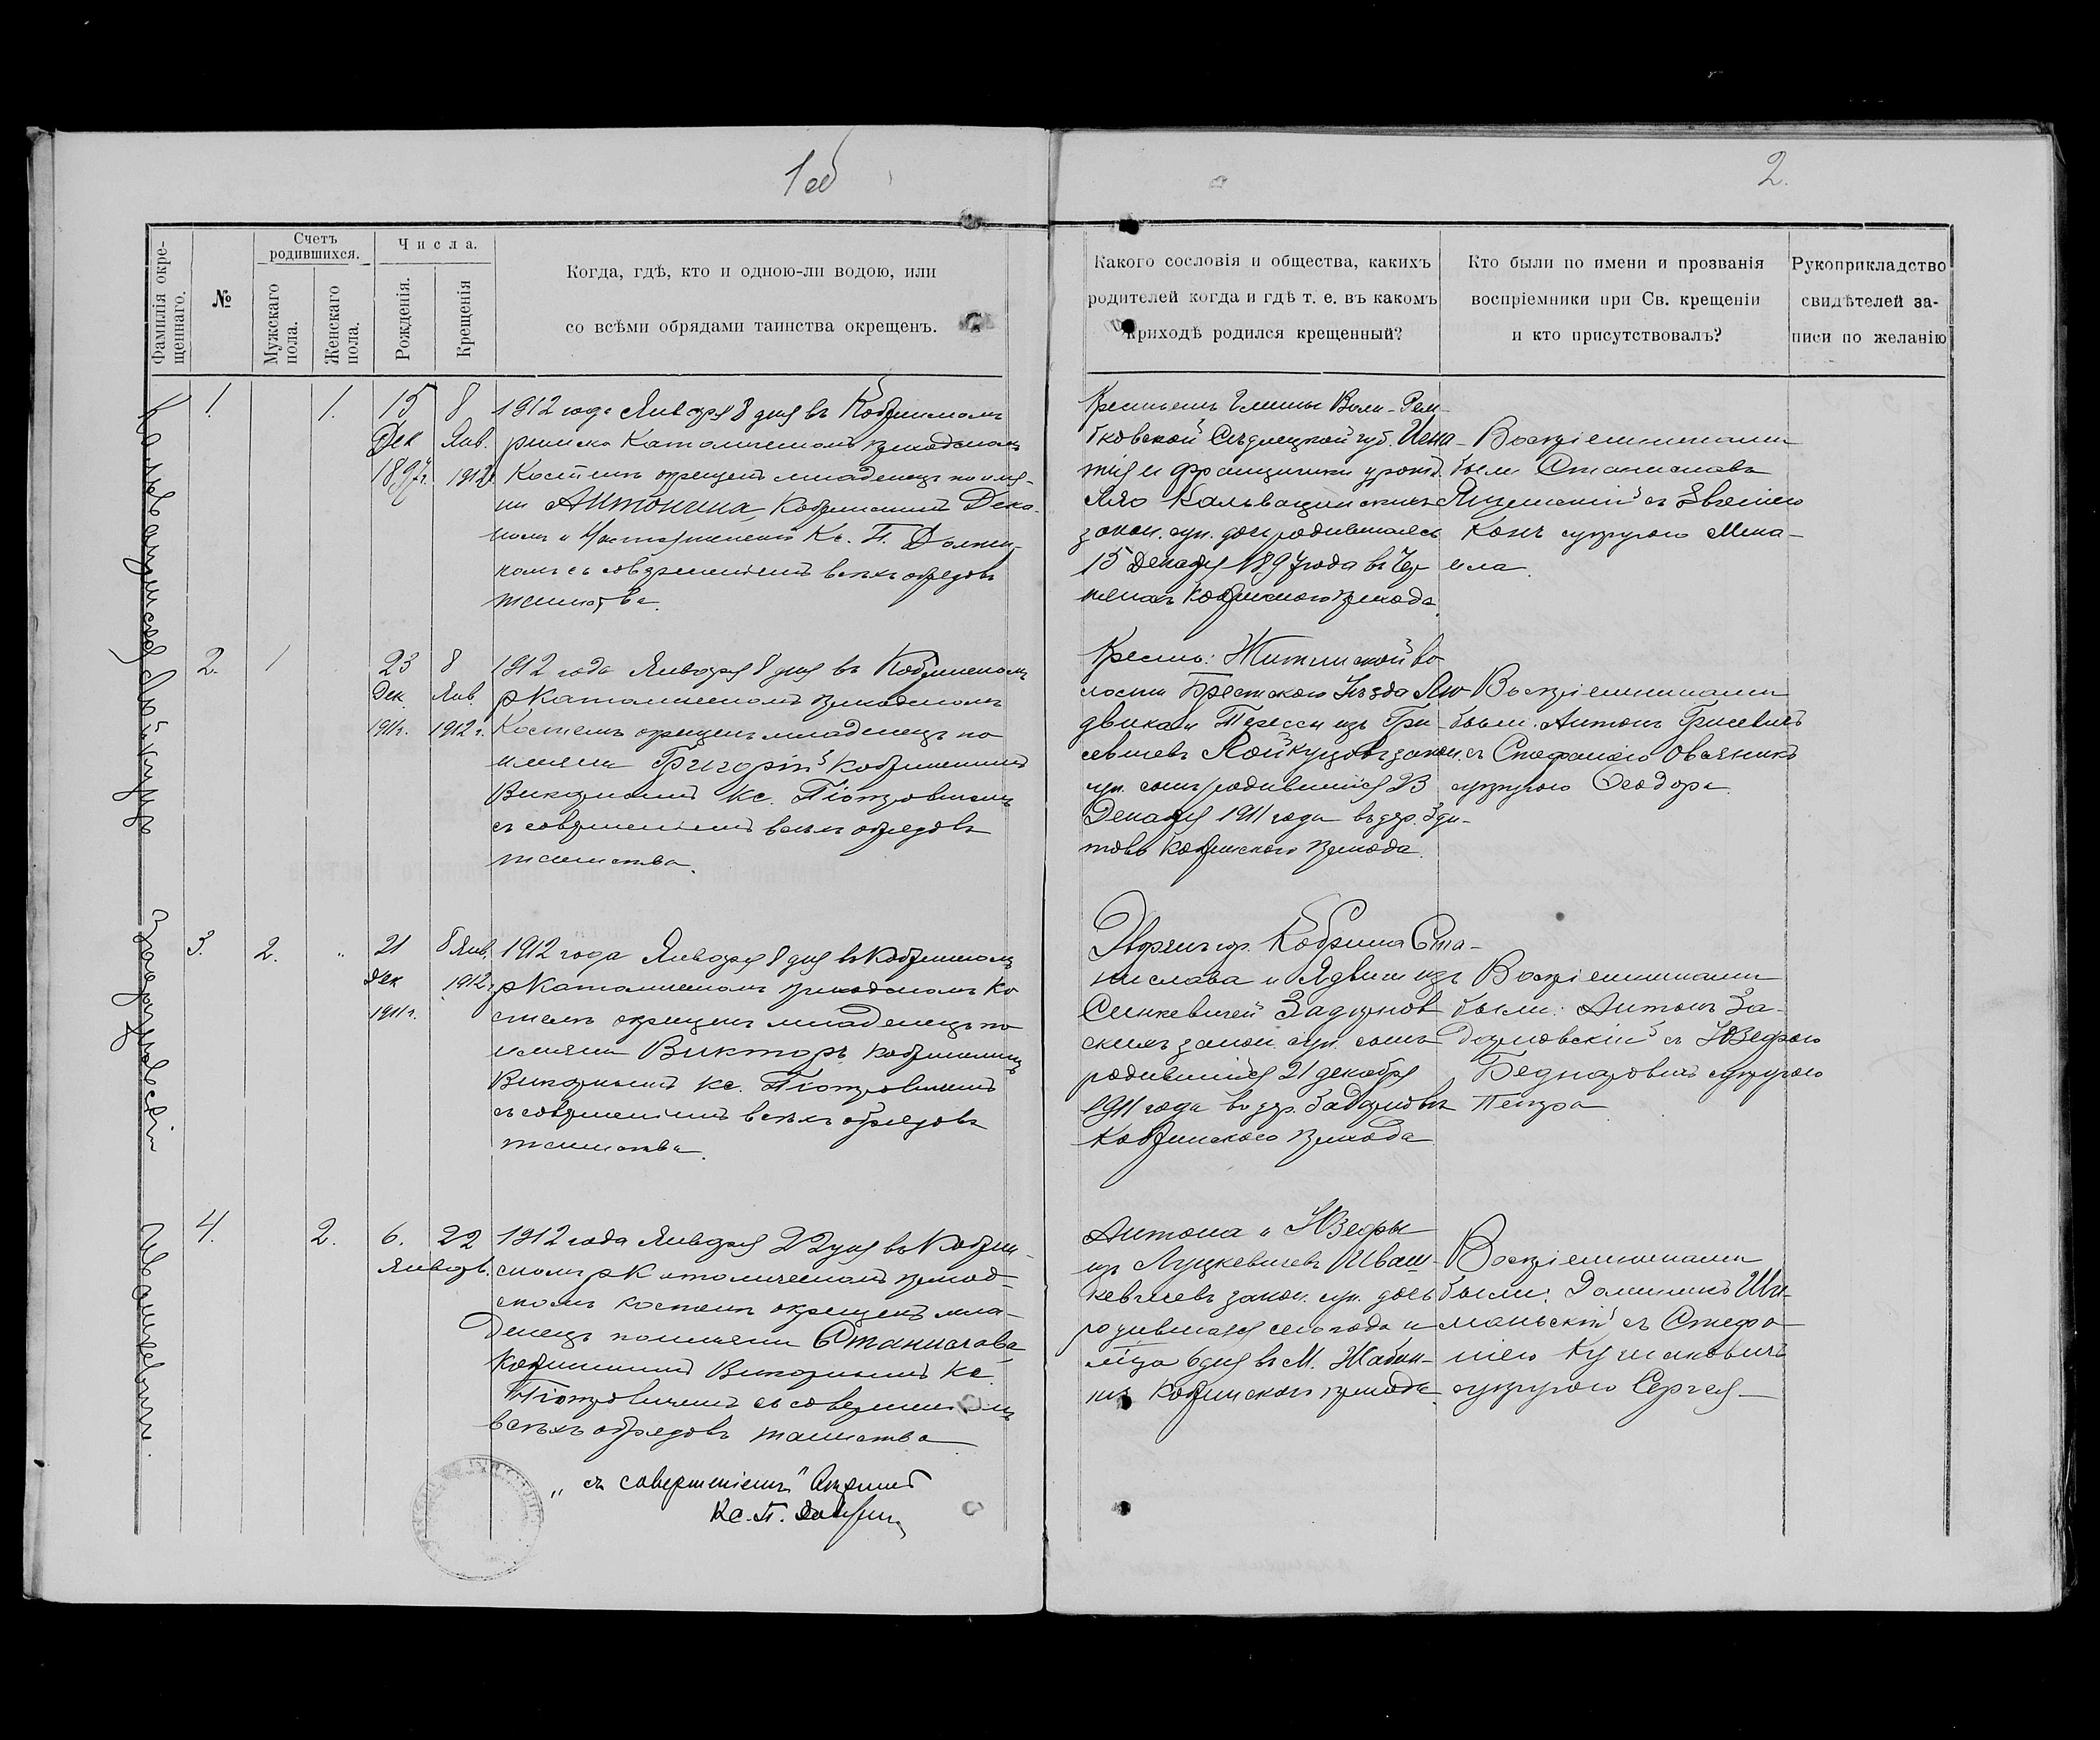 1об
2.
Фамилія окре-
щеннаго.
№
Счетъ
родившихся.
Мужскаго
пола.
Женскаго
пола.
Числа.
Рожденія.
Крещенія
Когда, гдѣ, кто и одною-ли водою, или
со всѣми обрядами таинства окрещенъ.
Какого сословія и общества, какихъ
родителей когда и гдѣ т. е. въ какомъ
приходѣ родился крещенный?
Кто были по имени и прозванія
воспріемники при Св. крещеніи
и кто присутствовалъ?
Рукоприкладство
свидѣтелей за-
писи по желанію
1.
1.
15
Дек
1897г.
8
Янв.
1912
1912 года Января 8 дня въ Кобринскомъ
римско Католическомъ приходскомъ
Костелѣ окрещенъ младенецъ по име-
ни Антонина, Кобринскимъ Дека-
номъ и Настоятелемъ Кс. П.
съ совершеніемъ всѣхъ обрядовъ
таинства.
Крестьянъ Гмины
Сѣдлецкой губ. Игна-
тія и Францишки урожд.
Кальвацинскихъ
закон. суп. дочь родившаяся
15 Декабря 1897 года въ
Кобринскаго прихода.
Воспріемниками
были Станиславъ
съ Евгеніею
супругою Миха-
ила.
2.
1
23
Дек.
1911г.
8
Янв.
1912 г.
1912 года Января 8 дня въ Кобринскомъ
рКатолическомъ приходскомъ
Костелѣ окрещенъ младенецъ по
имени Григорій Кобринскимъ
Викарнымъ Кс. Піотровичемъ
съ совершеніемъ всѣхъ обрядовъ
таинства.
Крестьян: Житинской во
лости Брестскаго Уѣзда Лю
двика и Терессы изъ Гри
севичевъ Лойкуцовъ закон.
суп. сынъ родившійся 23
Декабря 1911 года въ дер. Зди-
товѣ Кобринскаго прихода.
Воспріемниками
были: Антонъ Грисевичъ
съ Стефаніею Овсяникъ
супругою Ѳеодора.
3.
2.
"
21
Дек
1911г.
8 Янв.
1912г.
1912 года Января 8 дня въ Кобринскомъ
рКатолическомъ приходскомъ Ко
стелѣ окрещенъ младенецъ по
имени Викторъ Кобринскимъ
Викарнымъ Кс. Піотровичемъ
съ совершеніемъ всѣхъ обрядовъ
таинства.
Дворянъ гор. Кобрина Ста-
нислава и Ядвиги изъ
Синкевичей Задарнов
скихъ закон. суп. сынъ
родившійся 21 декабря
1911 года въ дер.
Кобринскаго прихода
Воспріемниками
были: Антонъ За-
дарновскій съ Юзефою
Беднаровичъ супругою
Петра
4.
2.
6.
Январ.
22
1912 года Января 22 дня въ Кобрин-
скомъ рКатолическомъ приход
скомъ костелѣ окрещенъ мла-
денецъ по имени Станислава
Кобринскимъ Викарнымъ Кс.
Піотровичемъ съ совершеніемъ
всѣхъ обрядовъ таинства
Антона и Юзефы
изъ Луцкевичевъ Иваш-
кевичевъ закон. суп. дочь
родившаяся сего года и
мѣсяца 6 дня въ М. Жабин-
кѣ Кобринскаго прихода.
Воспріемниками
были: Доминикъ Ши-
маньскій съ Стефа
ніею
супругою Сергея
„съ совершеніемъ"
Кс. П.
Задарновскій
Ивашкевичъ.